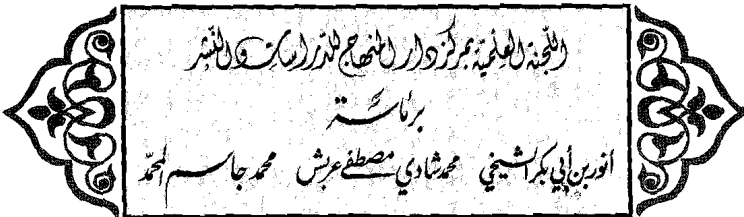 اللجنة العلمية بمركز دار المنهاج للدراسات والنشر
برئاسة
أنور بن أبي بكر الشيخي محمد شادي مصطفى عربش محمد جاسم المحمد